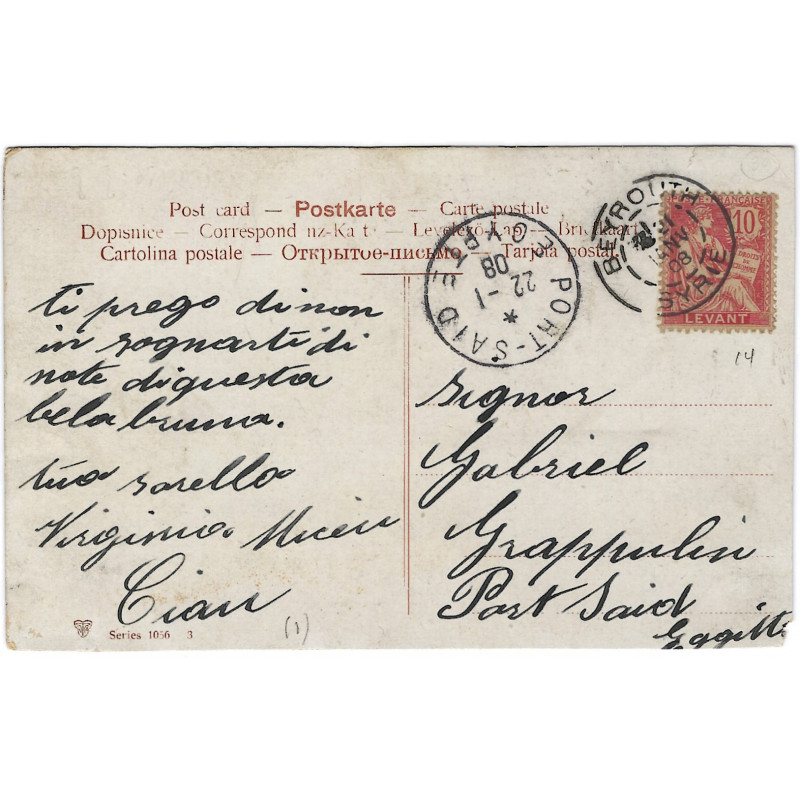 Post card – Postkarte – Carte postale
Dopisnice – Correspondenz-Karte – Levelező-Lap – Briefkaart
Cartolina postale – Открытое письмо – Tarjeta postal.
BEYROUTH
SYRIE
08
FRANÇAISE
10
DROITS DE L'HOMME
LEVANT
PORT-SAID
EGYPTE
22 -1
08
*
14
ti prego di non
in sognarti di
note di questa
bela bruna.
tua sorella
Virginia
Ciau
Signor
Gabriel
Grappulin
Port Said
Eggitt
(1)
Series 1056 3